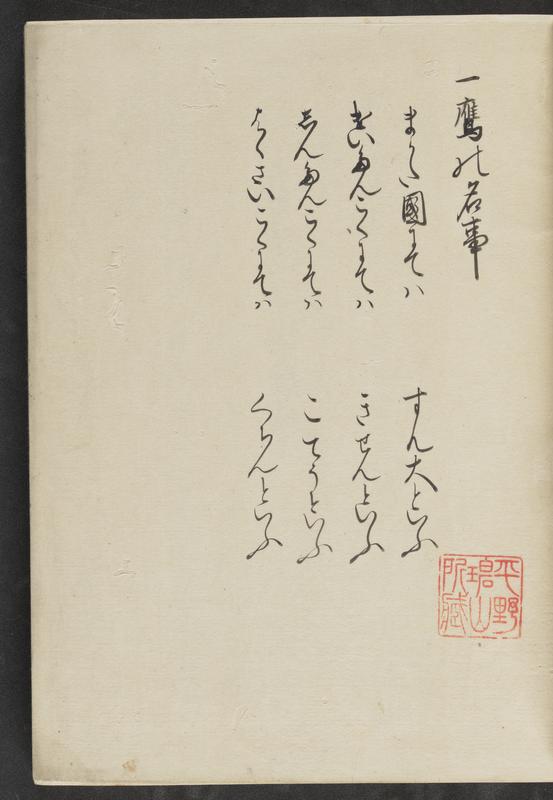 一鷹の名事
まかた國にてハ　すん大といふ
けいたんこくにてハ　きせんといふ
しんたんこくにてハ　こてうといふ
はくさいこくにてハ　くちんといふ
平野碧山所蔵